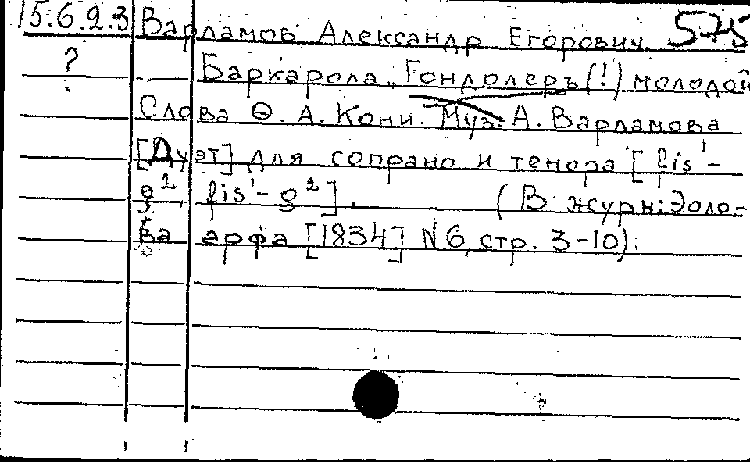 15.6.2.3 Варламов Александр Егорович 575
? Баркарола. Гондолеръ(!) молодой
Слова Ѳ. А. Кони. Муз. А. Варламова
[Дуэт] для сопрано и тенора [fis¹-
g², fis¹-g²]. (В журн: Эоло-
ва арфа [1834] N6, стр. 3-10).